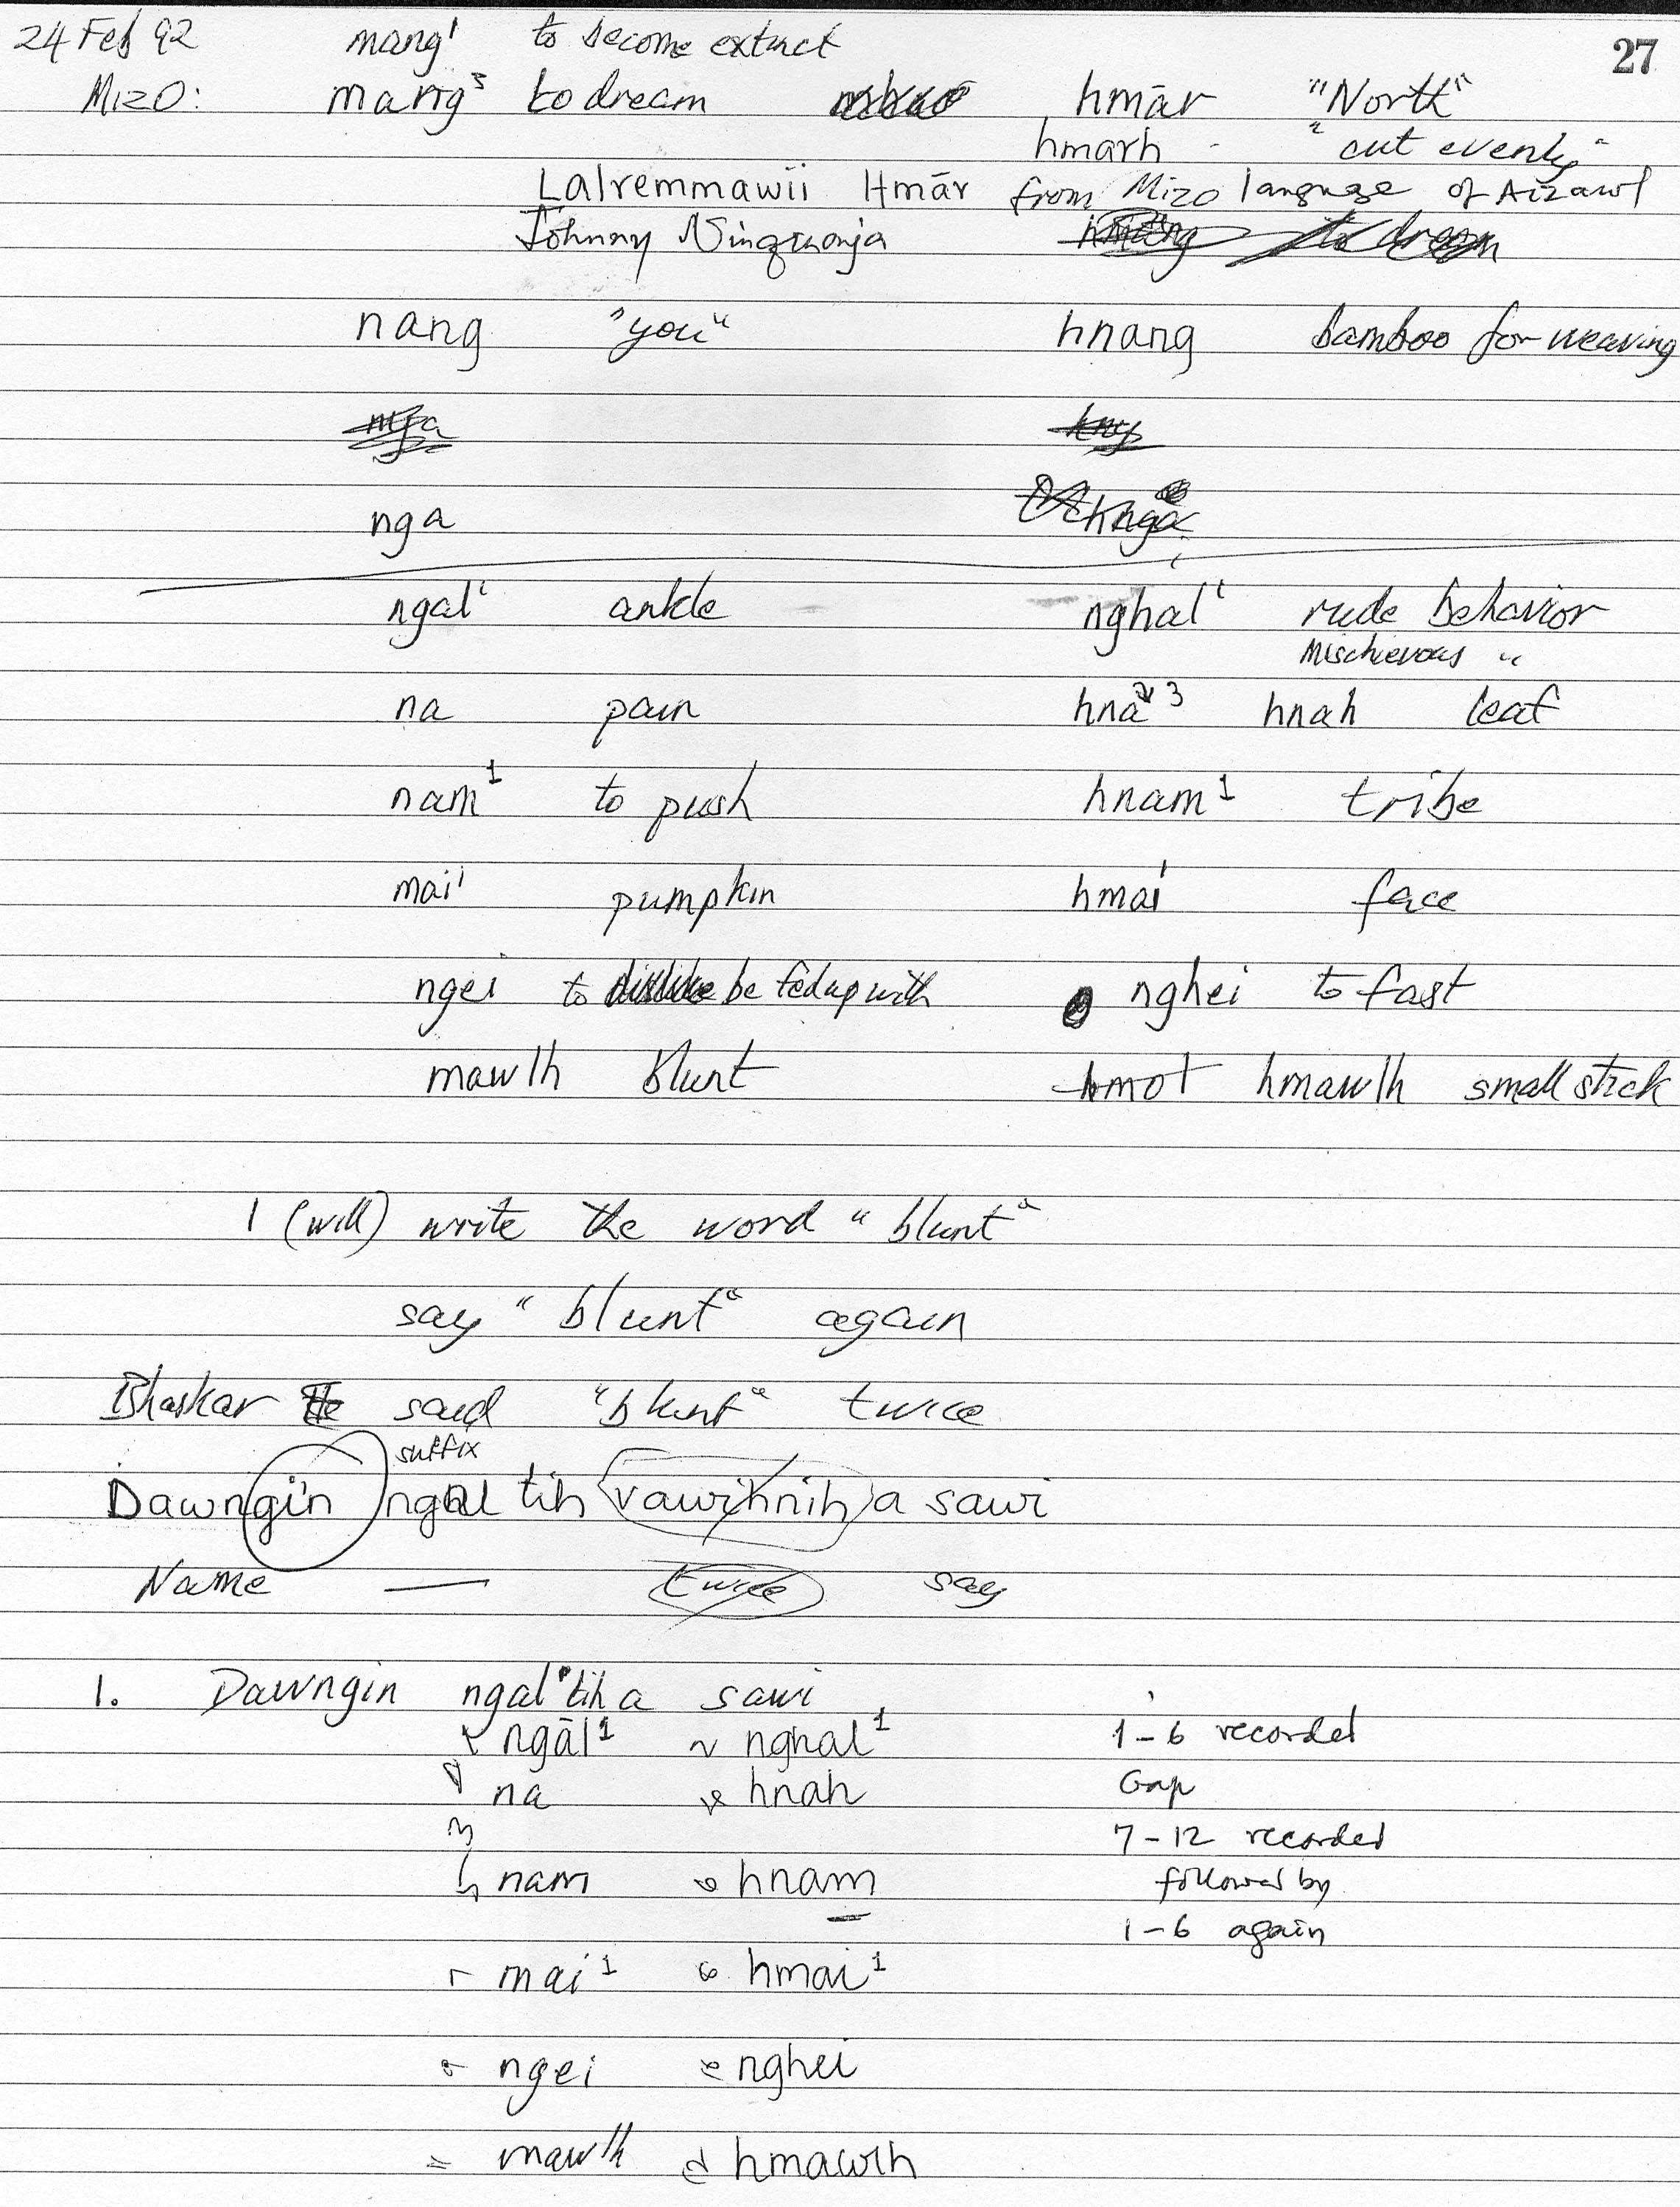 24 Feb 92 mang¹ to become extinct 27
Mizo: mang³ to dream hmār "North"
hmarh - "cut evenly"
Lalremmawii Hmār from Mizo language of Aizawl
Johnny
nang "you" hnang bamboo for weaving
nga
ngal¹ ankle nghal¹ rude behavior
Mischievous "
na pain hna³ hnah leaf
nam¹ to push hnam¹ tribe
mai¹ pumpkin hmai¹ face
ngei to dislike be fed up with nghei to fast
mawlh blunt hmot hmawlh small stick
I (will) write the word "blunt"
say "blunt" again
Bhaskar He said "blunt" twice
suffix
Dawngin ngal tih vawihnih a sawi
Name — twice say
1. Dawngin ngal tih a sawi
ngāl¹ nghal¹ 1-6 recorded
na hnah Gap
7-12 recorded
nam hnam followed by
1-6 again
mai¹ hmai¹
ngei nghei
mawlh hmawlh